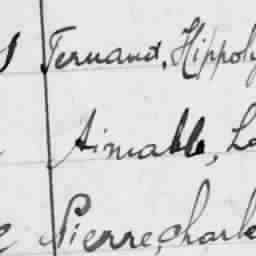 Fernand, Hippoly
Aimable, Lo
Pierre, Charle